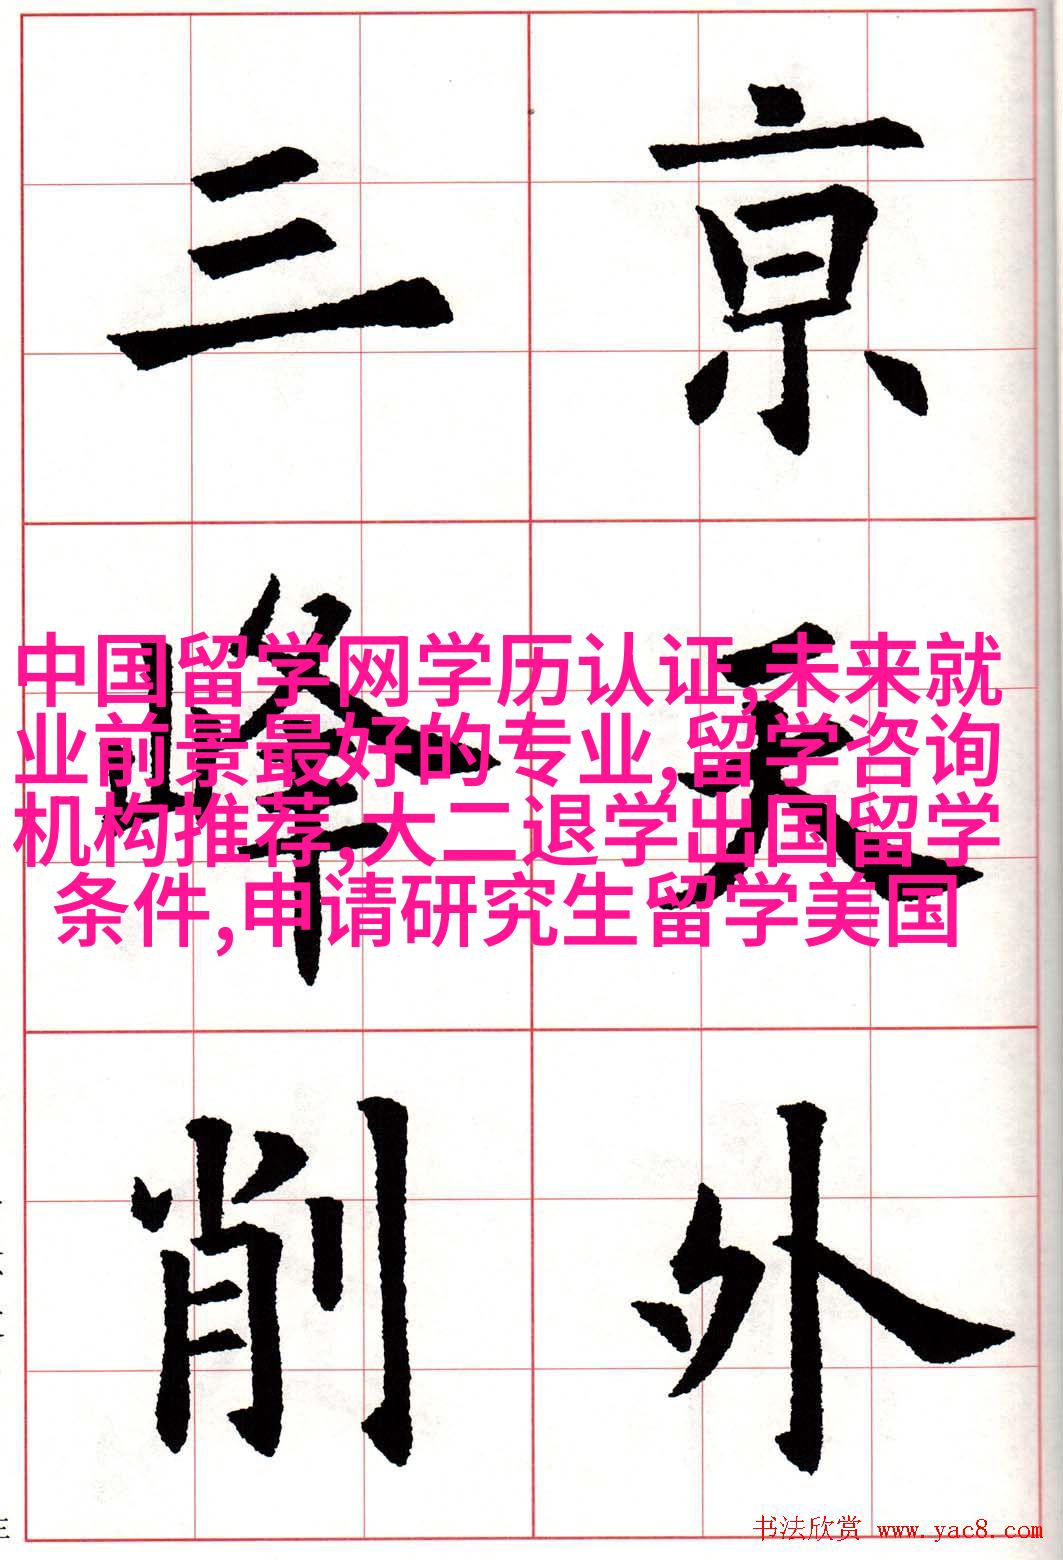 亰天外
三峰削
中国留学网学历认证,未来就
业前景最好的专业,留学咨询
机构推荐,大二退学出国留学
条件,申请研究生留学美国
书法欣赏 www.yac8.com